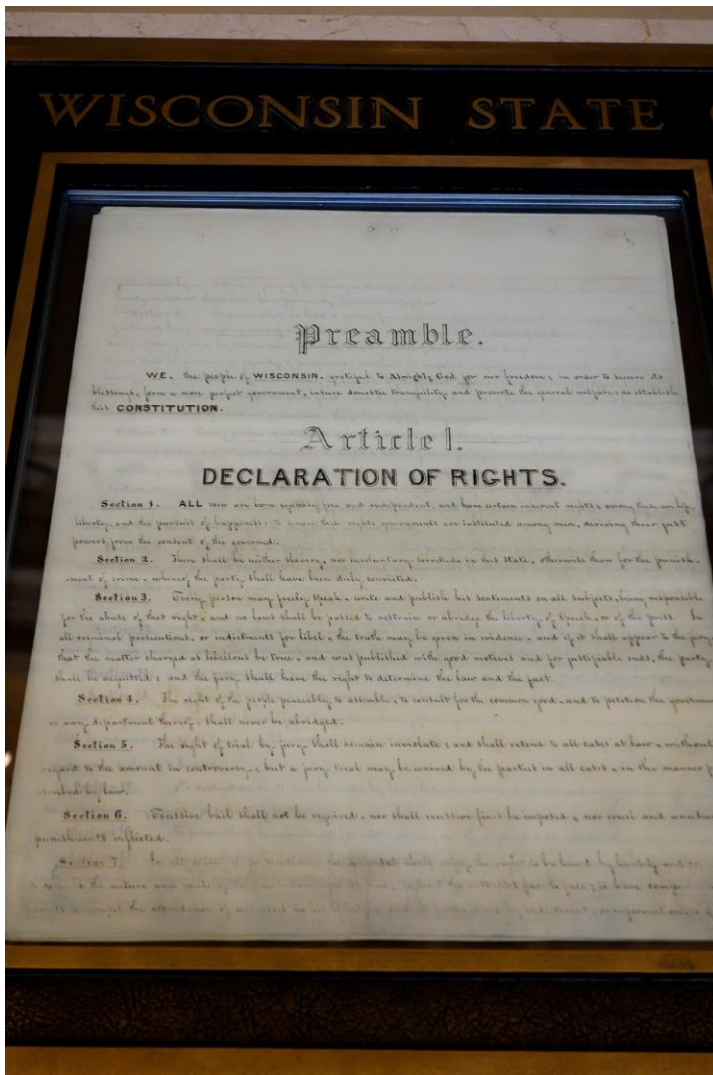 WISCONSIN STATE
Preamble.
WE, the people of WISCONSIN, grateful to Almighty God for our freedom; in order to secure its
blessings, form a more perfect government, insure domestic tranquility, and promote the general welfare; do establish
this CONSTITUTION.
Article 1.
DECLARATION OF RIGHTS.
Section 1. ALL men are born equally free and independent, and have certain inherent rights; among these are life,
liberty, and the pursuit of happiness: to secure these rights governments are instituted among men, deriving their just
powers from the consent of the governed.
Section 2. There shall be neither slavery, nor involuntary servitude in this State, otherwise than for the punish-
ment of crime, whereof the party shall have been duly convicted.
Section 3. Every person may freely speak, write and publish his sentiments on all subjects, being responsible
for the abuse of that right, and no laws shall be passed to restrain or abridge the liberty of speech, or of the press. In
all criminal prosecutions, or indictments for libel, the truth may be given in evidence, and if it shall appear to the jury
that the matter charged as libellous be true, and was published with good motives and for justifiable ends, the party
shall be acquitted; and the jury shall have the right to determine the law and the fact.
Section 4. The right of the people peaceably to assemble, to consult for the common good, and to petition the governm
or any department thereof, shall never be abridged.
Section 5. The right of trial by jury shall remain inviolate; and shall extend to all cases at law, without
regard to the amount in controversy; but a jury trial may be waived by the parties in all cases, in the manner p
scribed by law.
Section 6. Excessive bail shall not be required, nor shall excessive fines be imposed, nor cruel and unusual
punishments inflicted.
Section 7. In all criminal prosecutions, the accused shall enjoy the right to be heard by himself and
the nature and cause of to meet the witnesses face to face; to have
to compel the attendance of witnesses in his behalf; and in prosecutions by indictment, or information,